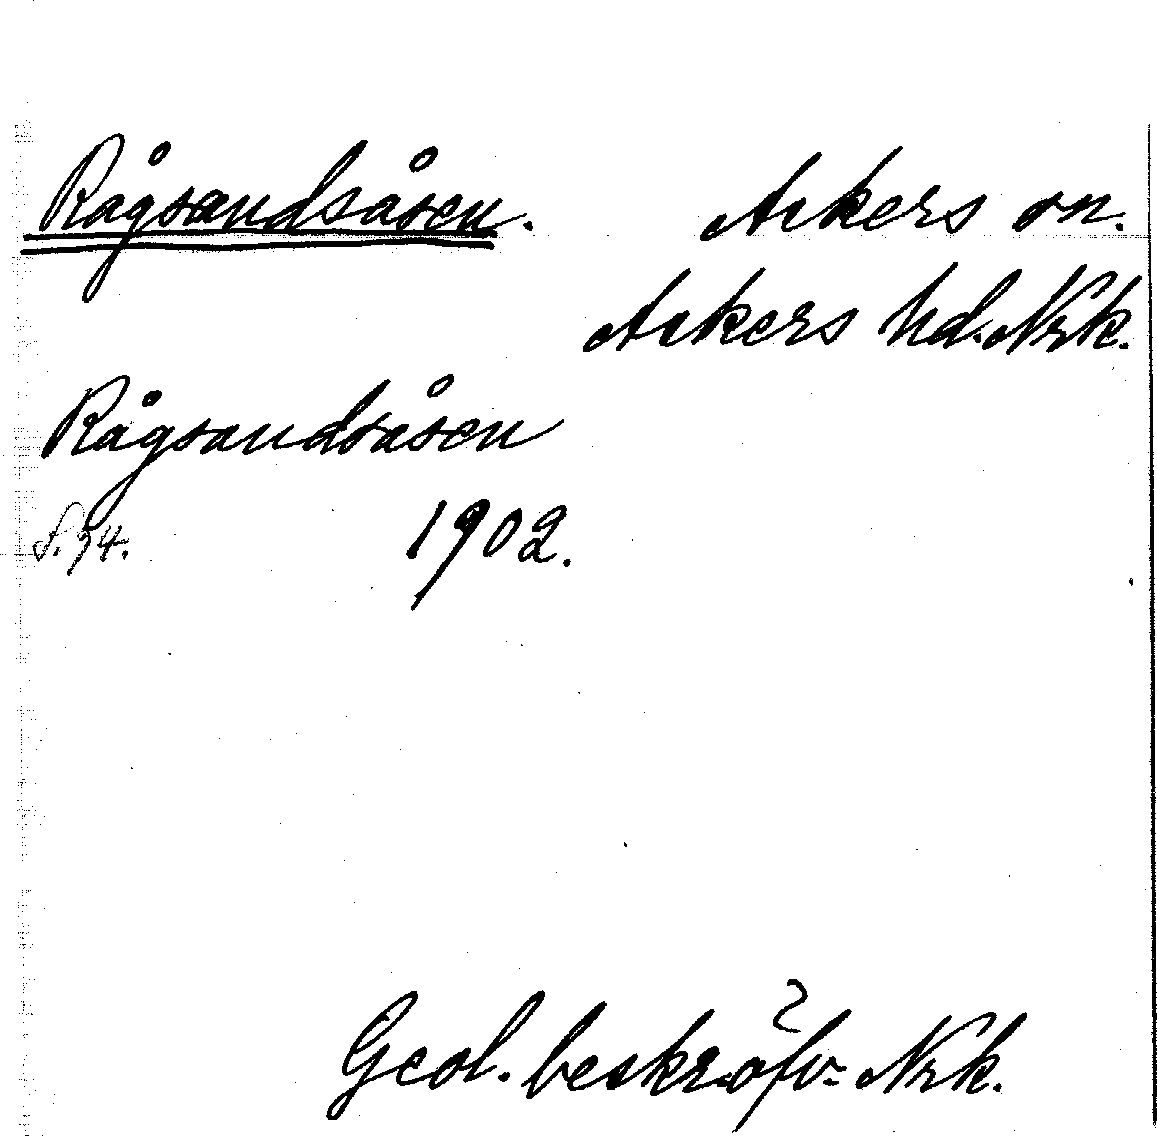 Rågsandsåsen. Askers sn.
Askers hd. Nrk.
Rågsandsåsen
1902.
Geol. beskr. öfv. Nrk.